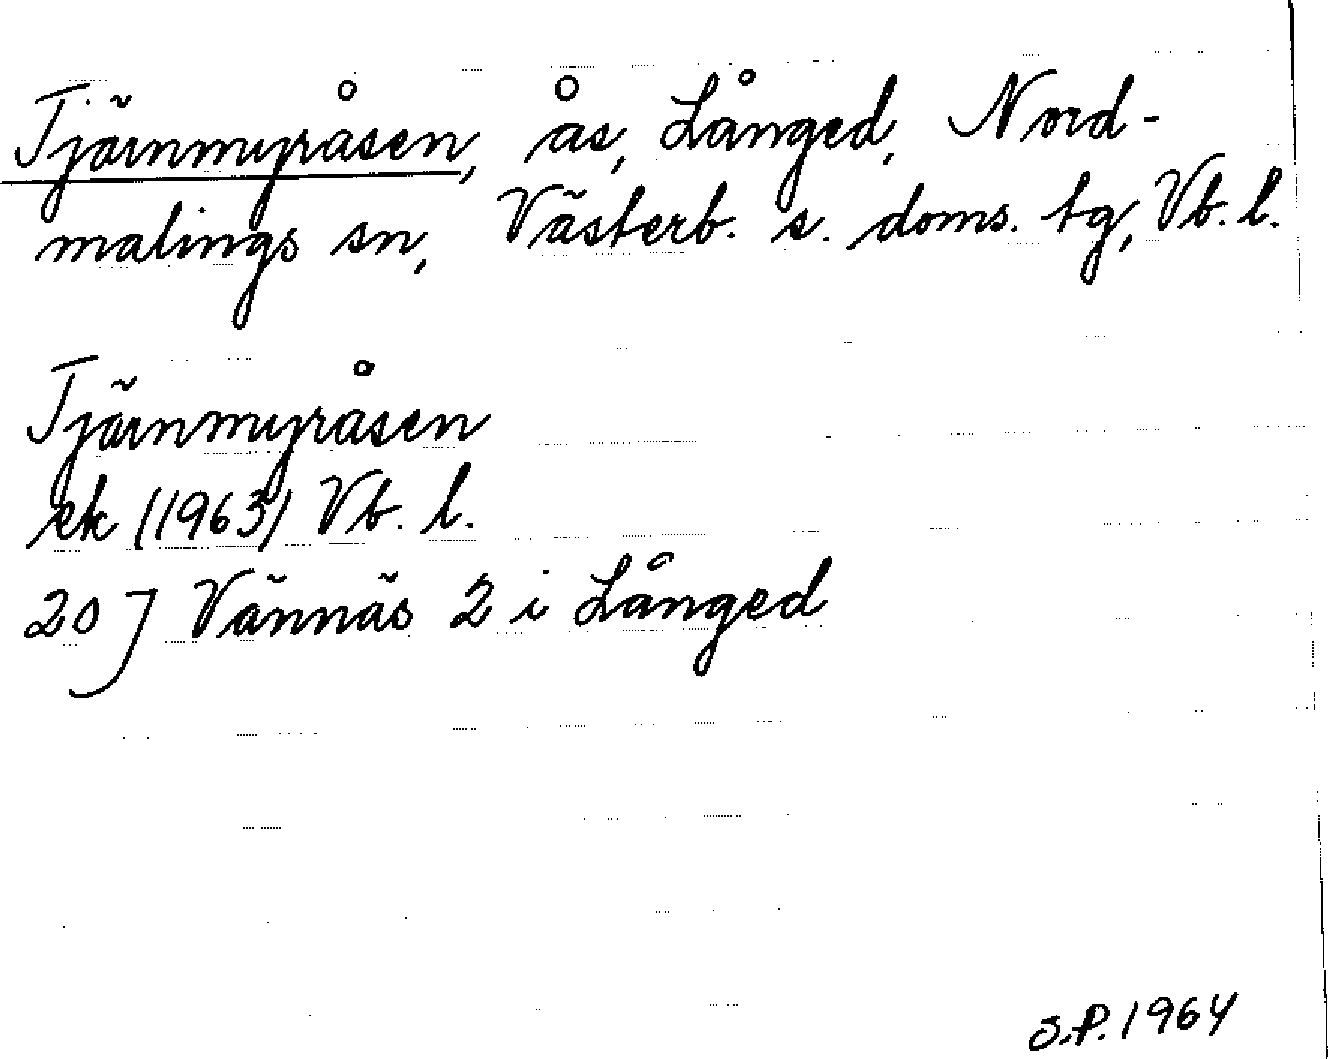 Tjärnmyråsen, ås, Långed, Nord-
malings sn, Västerb. s. doms. tg, Vb. l.
Tjärnmyråsen
ek (1963) Vb. l.
20 J Vännäs 2 i Långed
S.P. 1964